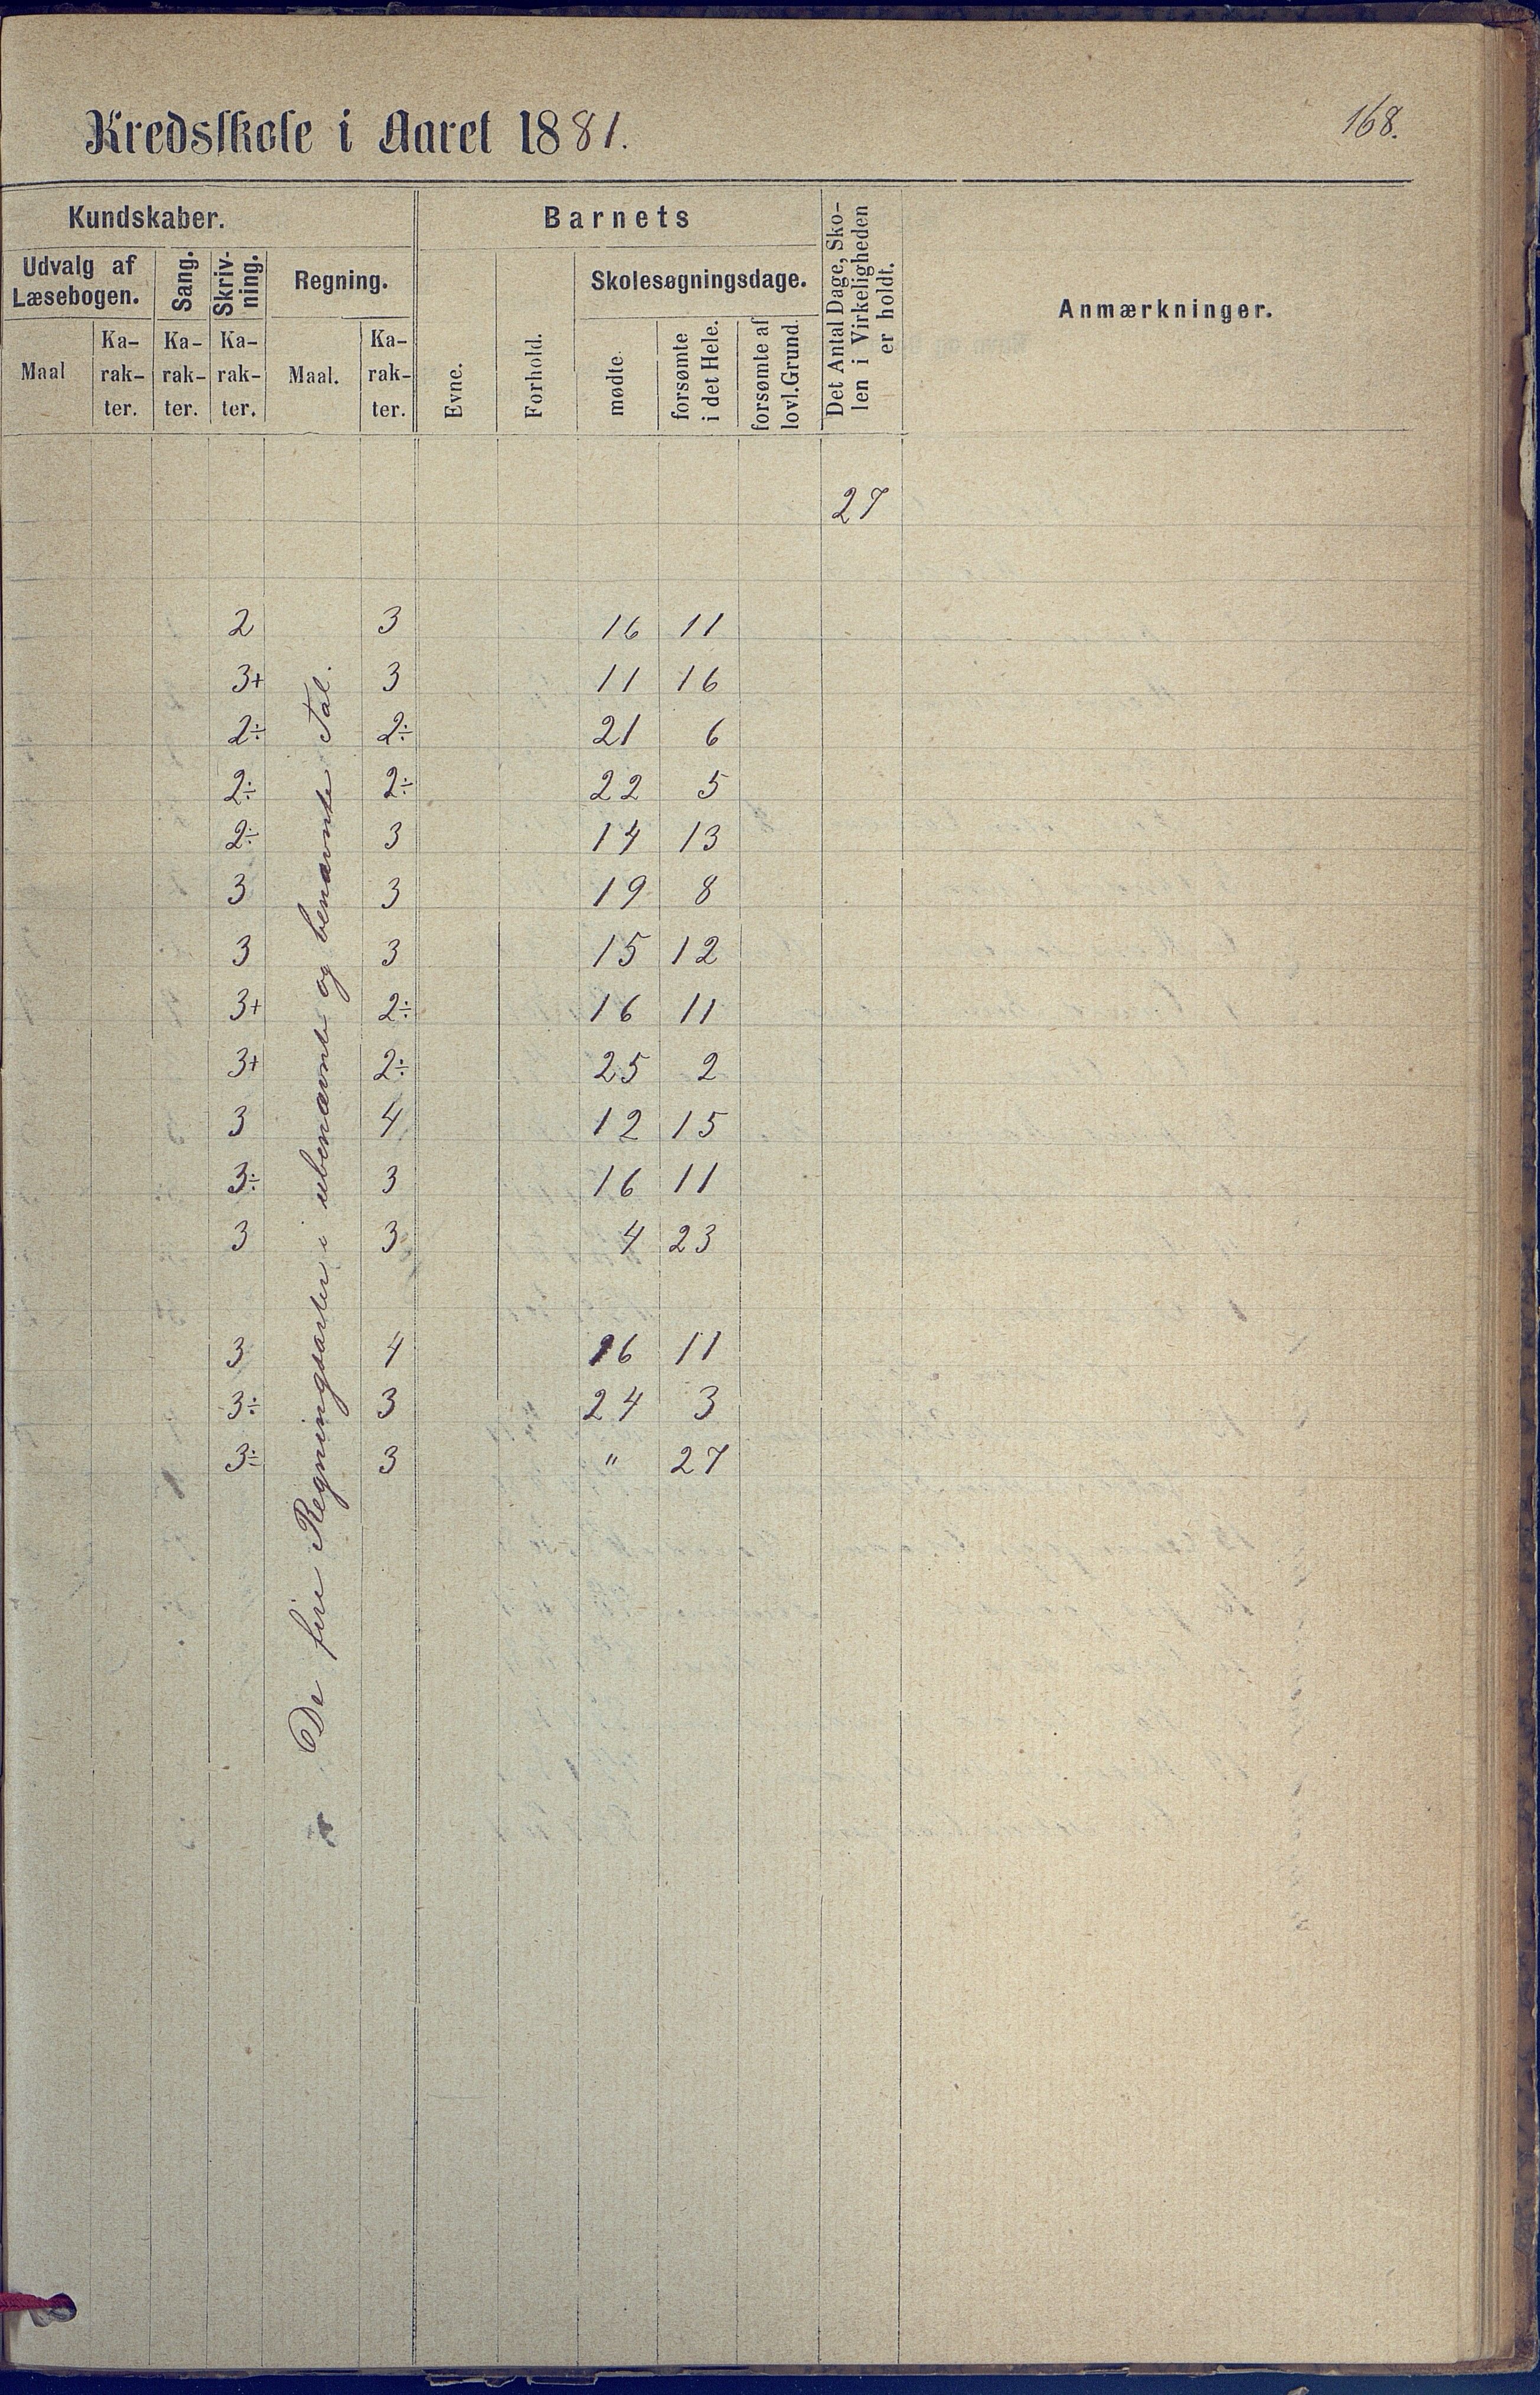 Kredsskole i Aaret 1881.
168.
Kundskaber.
Barnets
Det Antal Dage, Sko-
len i Virkeligheden
er holdt.
Anmærkninger.
Udvalg af
Læsebogen.
Sang.
Skriv-
ning.
Regning.
Evne.
Forhold.
Skolesøgningsdage.
Maal
Ka-
rak-
ter.
Ka-
rak-
ter.
Ka-
rak-
ter.
Maal.
Ka-
rak-
ter.
mødte.
forsømte
i det Hele.
forsømte af
lovl. Grund.
27
De fire Regningsarter i ubenævnte og benævnte Tal.
2 3 16 11
3+ 3 11 16
2÷ 2÷ 21 6
2÷ 2÷ 22 5
2÷ 3 14 13
3 3 19 8
3 3 15 12
3+ 2÷ 16 11
3+ 2÷ 25 2
3 4 12 15
3÷ 3 16 11
3 3 4 23
3 4 16 11
3÷ 3 24 3
3÷ 3 " 27